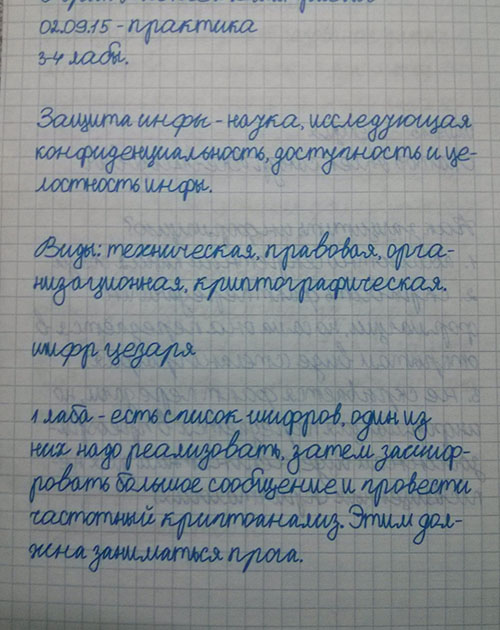 02.09.15 - практика
3-4 лабы.
Защита инфы - наука, исследующая
конфиденциальность, доступность и це-
лостность инфы.
Виды: техническая, правовая, орга-
низационная, криптографическая.
шифр цезаря
1 лаба - есть список шифров, один из
них надо реализовать, затем зашиф-
ровать большое сообщение и провести
частотный криптоанализ. Этим дол-
жна заниматься прога.